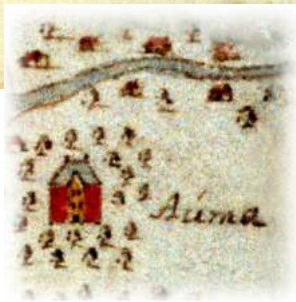 Aúma